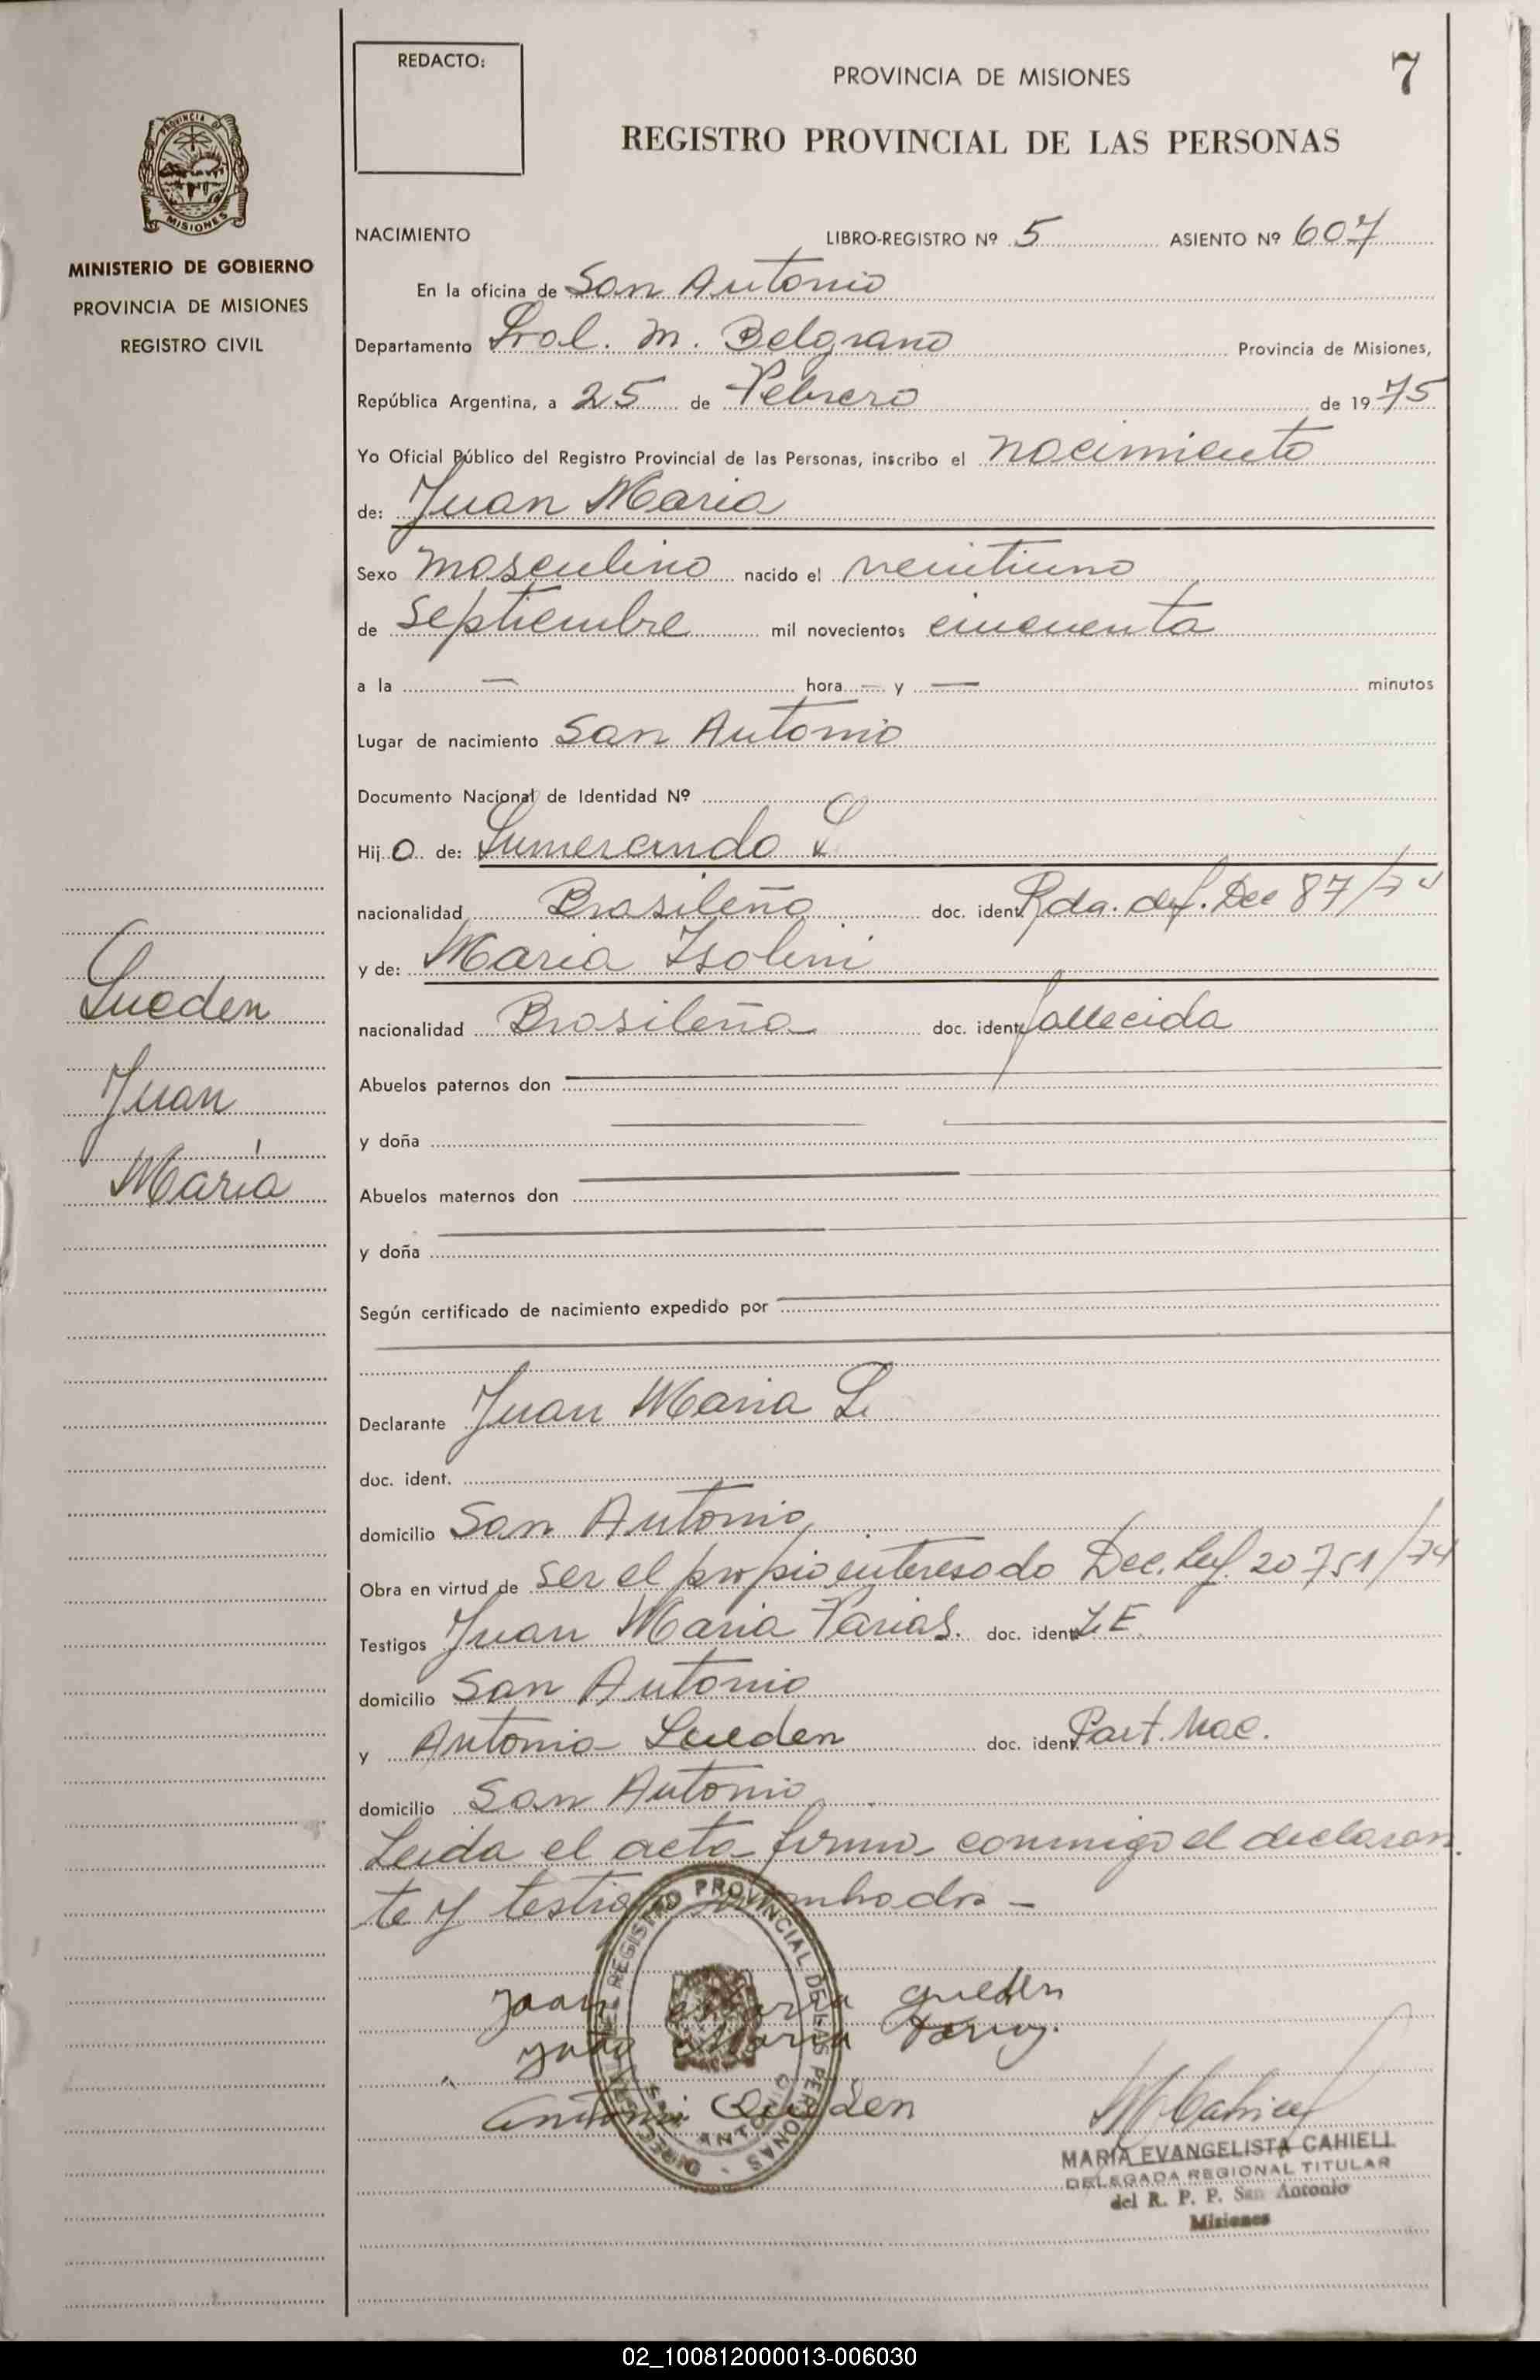 REDACTO:
PROVINCIA DE MISIONES
7
REGISTRO PROVINCIAL DE LAS PERSONAS
PROVINCIA DE
MISIONES
MINISTERIO DE GOBIERNO
PROVINCIA DE MISIONES
REGISTRO CIVIL
NACIMIENTO LIBRO-REGISTRO Nº 5 ASIENTO Nº 607
En la oficina de San Antonio
Departamento Gral. M. Belgrano Provincia de Misiones,
República Argentina, a 25 de Febrero de 1975
Yo Oficial Público del Registro Provincial de las Personas, inscribo el nacimiento
de: Juan Maria
Sexo masculino nacido el veintiuno
de septiembre mil novecientos cincuenta
a la — hora — y — minutos
Lugar de nacimiento San Antonio
Documento Nacional de Identidad Nº
Hijo de: Gumercindo
nacionalidad Brasileño doc. ident. Dec 87/74
y de: Maria Isolini
nacionalidad Brasileña doc. ident. fallecida
Abuelos paternos don
y doña
Abuelos maternos don
y doña
Según certificado de nacimiento expedido por
Gueden
Juan
María
Declarante Juan Maria G.
doc. ident.
domicilio San Antonio
Obra en virtud de ser el propio interesado Dec. Ley. 20751/74
Testigos Juan Maria Farias. doc. ident. L.E.
domicilio San Antonio
y Antonio Gueden doc. ident. Part. Nac.
domicilio San Antonio
Leida el acta firma conmigo el declaran
te y testigos
Juan Maria Gueden
João Maria
Antonio Gueden
REGISTRO PROVINCIAL DE LAS PERSONAS
MARIA EVANGELISTA CAHIELL
DELEGADA REGIONAL TITULAR
del R. P. P. San Antonio
Misiones
02_100812000013-006030